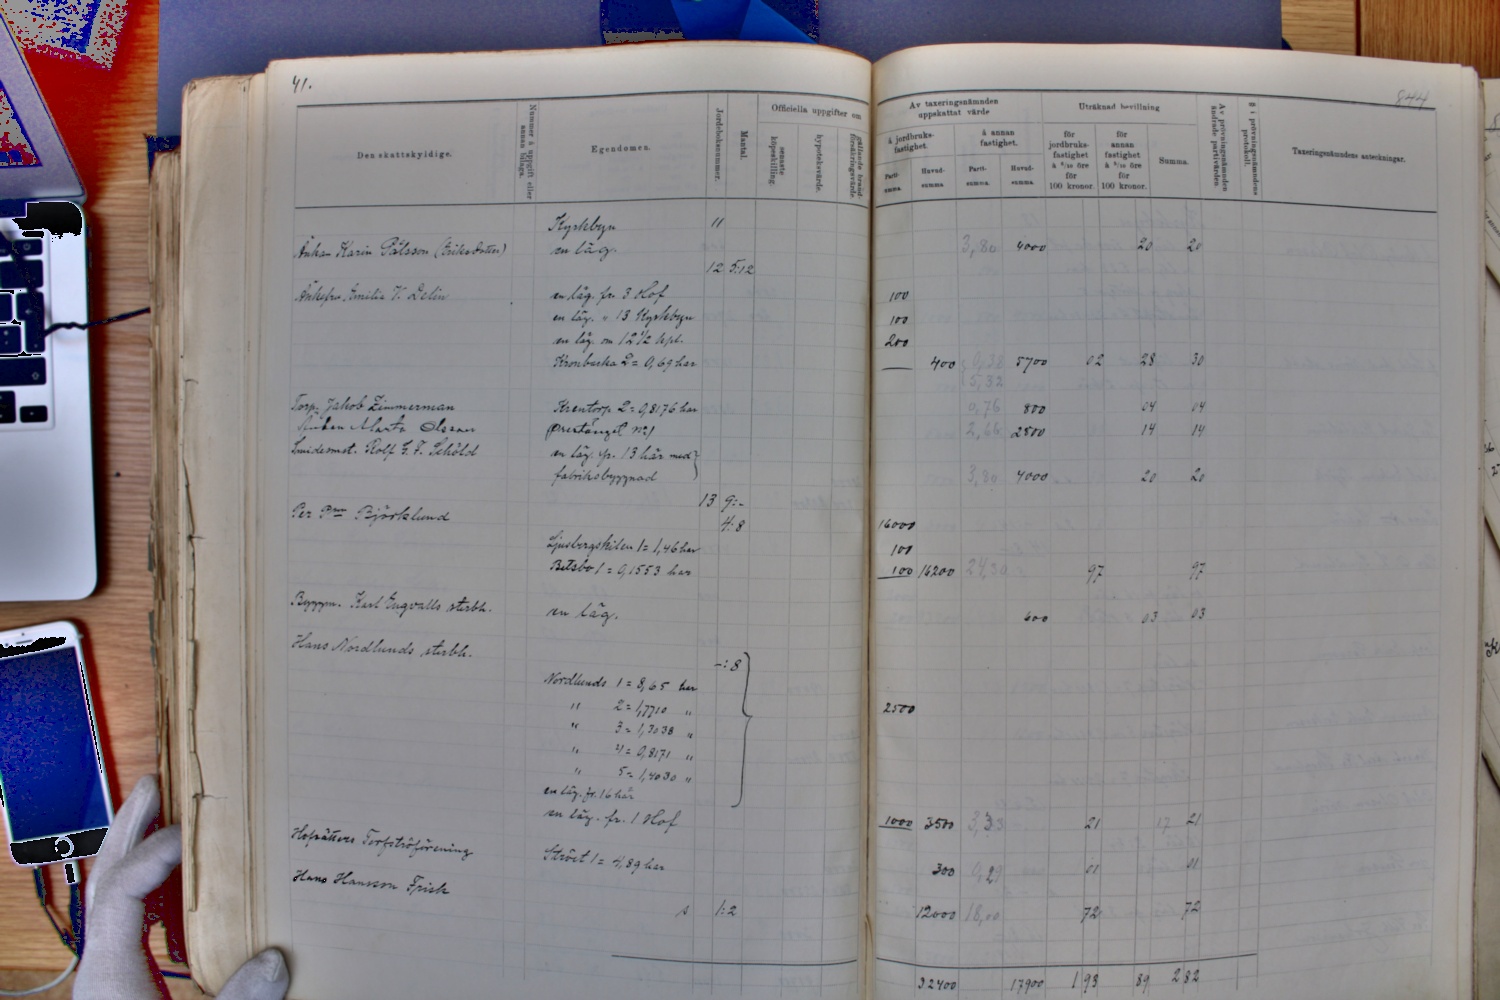 41.
844
Den skattskyldige.
Nummer å uppgift eller annan bilaga.
Egendomen.
Jordeboksnummer.
Mantal.
Officiella uppgifter om
senaste köpeskilling.
hypoteksvärde.
gällande brandförsäkringsvärde.
Av taxeringsnämnden uppskattat värde
å jordbruksfastighet.
å annan fastighet.
Partisumma.
Huvudsumma.
Partisumma.
Huvudsumma.
Uträknad bevillning
för jordbruksfastighet à 6/10 öre för 100 kronor.
för annan fastighet à 5/10 öre för 100 kronor.
Summa.
Av prövningsnämnden ändrade partivärden.
§ i prövningsnämndens protokoll.
Taxeringsnämndens anteckningar.
Kyrkbyn 11
Änkan Karin Pålsson (Eriksdotter) en läg. 3,80 4000 20 20
12 5:12
Änkefru Emilia V. Delin en läg. fr. 3 Hof 100
en läg. " 13 Kyrkbyn 100
en läg. om 12 1/2 kpl. 200
Kronbacka 2 = 0,69 har 400 5700 02 28 30
5,32
Torp. Jakob Zimmerman Krontorp 2 = 0,8176 har 0,76 800 04 04
Änkan Marta Olsson Prestänget No 1 2,66 2800 14 14
Smidesmst. Rolf G. F. Schöld en läg. fr. 13 här med
fabriksbyggnad 3,80 4000 20 20
13 9:-
Per Pson Björklund 4:8 16000
Ljusbergskilen 1 = 1,46 har 100
Betsbo 1 = 0,1553 har 100 16200 24,30 97 97
Byggm. Karl Engvalls sterbh. en läg. 600 03 03
Hans Nordlunds sterbh. -:8
Nordlunds 1 = 8,65 har
" 2 = 1,7710 " 2500
" 3 = 1,3038 "
" 4 = 0,8171 "
" 5 = 1,4030 "
en läg. fr. 16 här
en läg. fr. 1 Hof 1000 3500 21 17 21
Hofsättens Torfströförening Ströet 1 = 4,89 har 300 01 01
Hans Hansson Frisk
s 1:2 12000 18,00 72 72
32400 17900 1 93 89 2 82